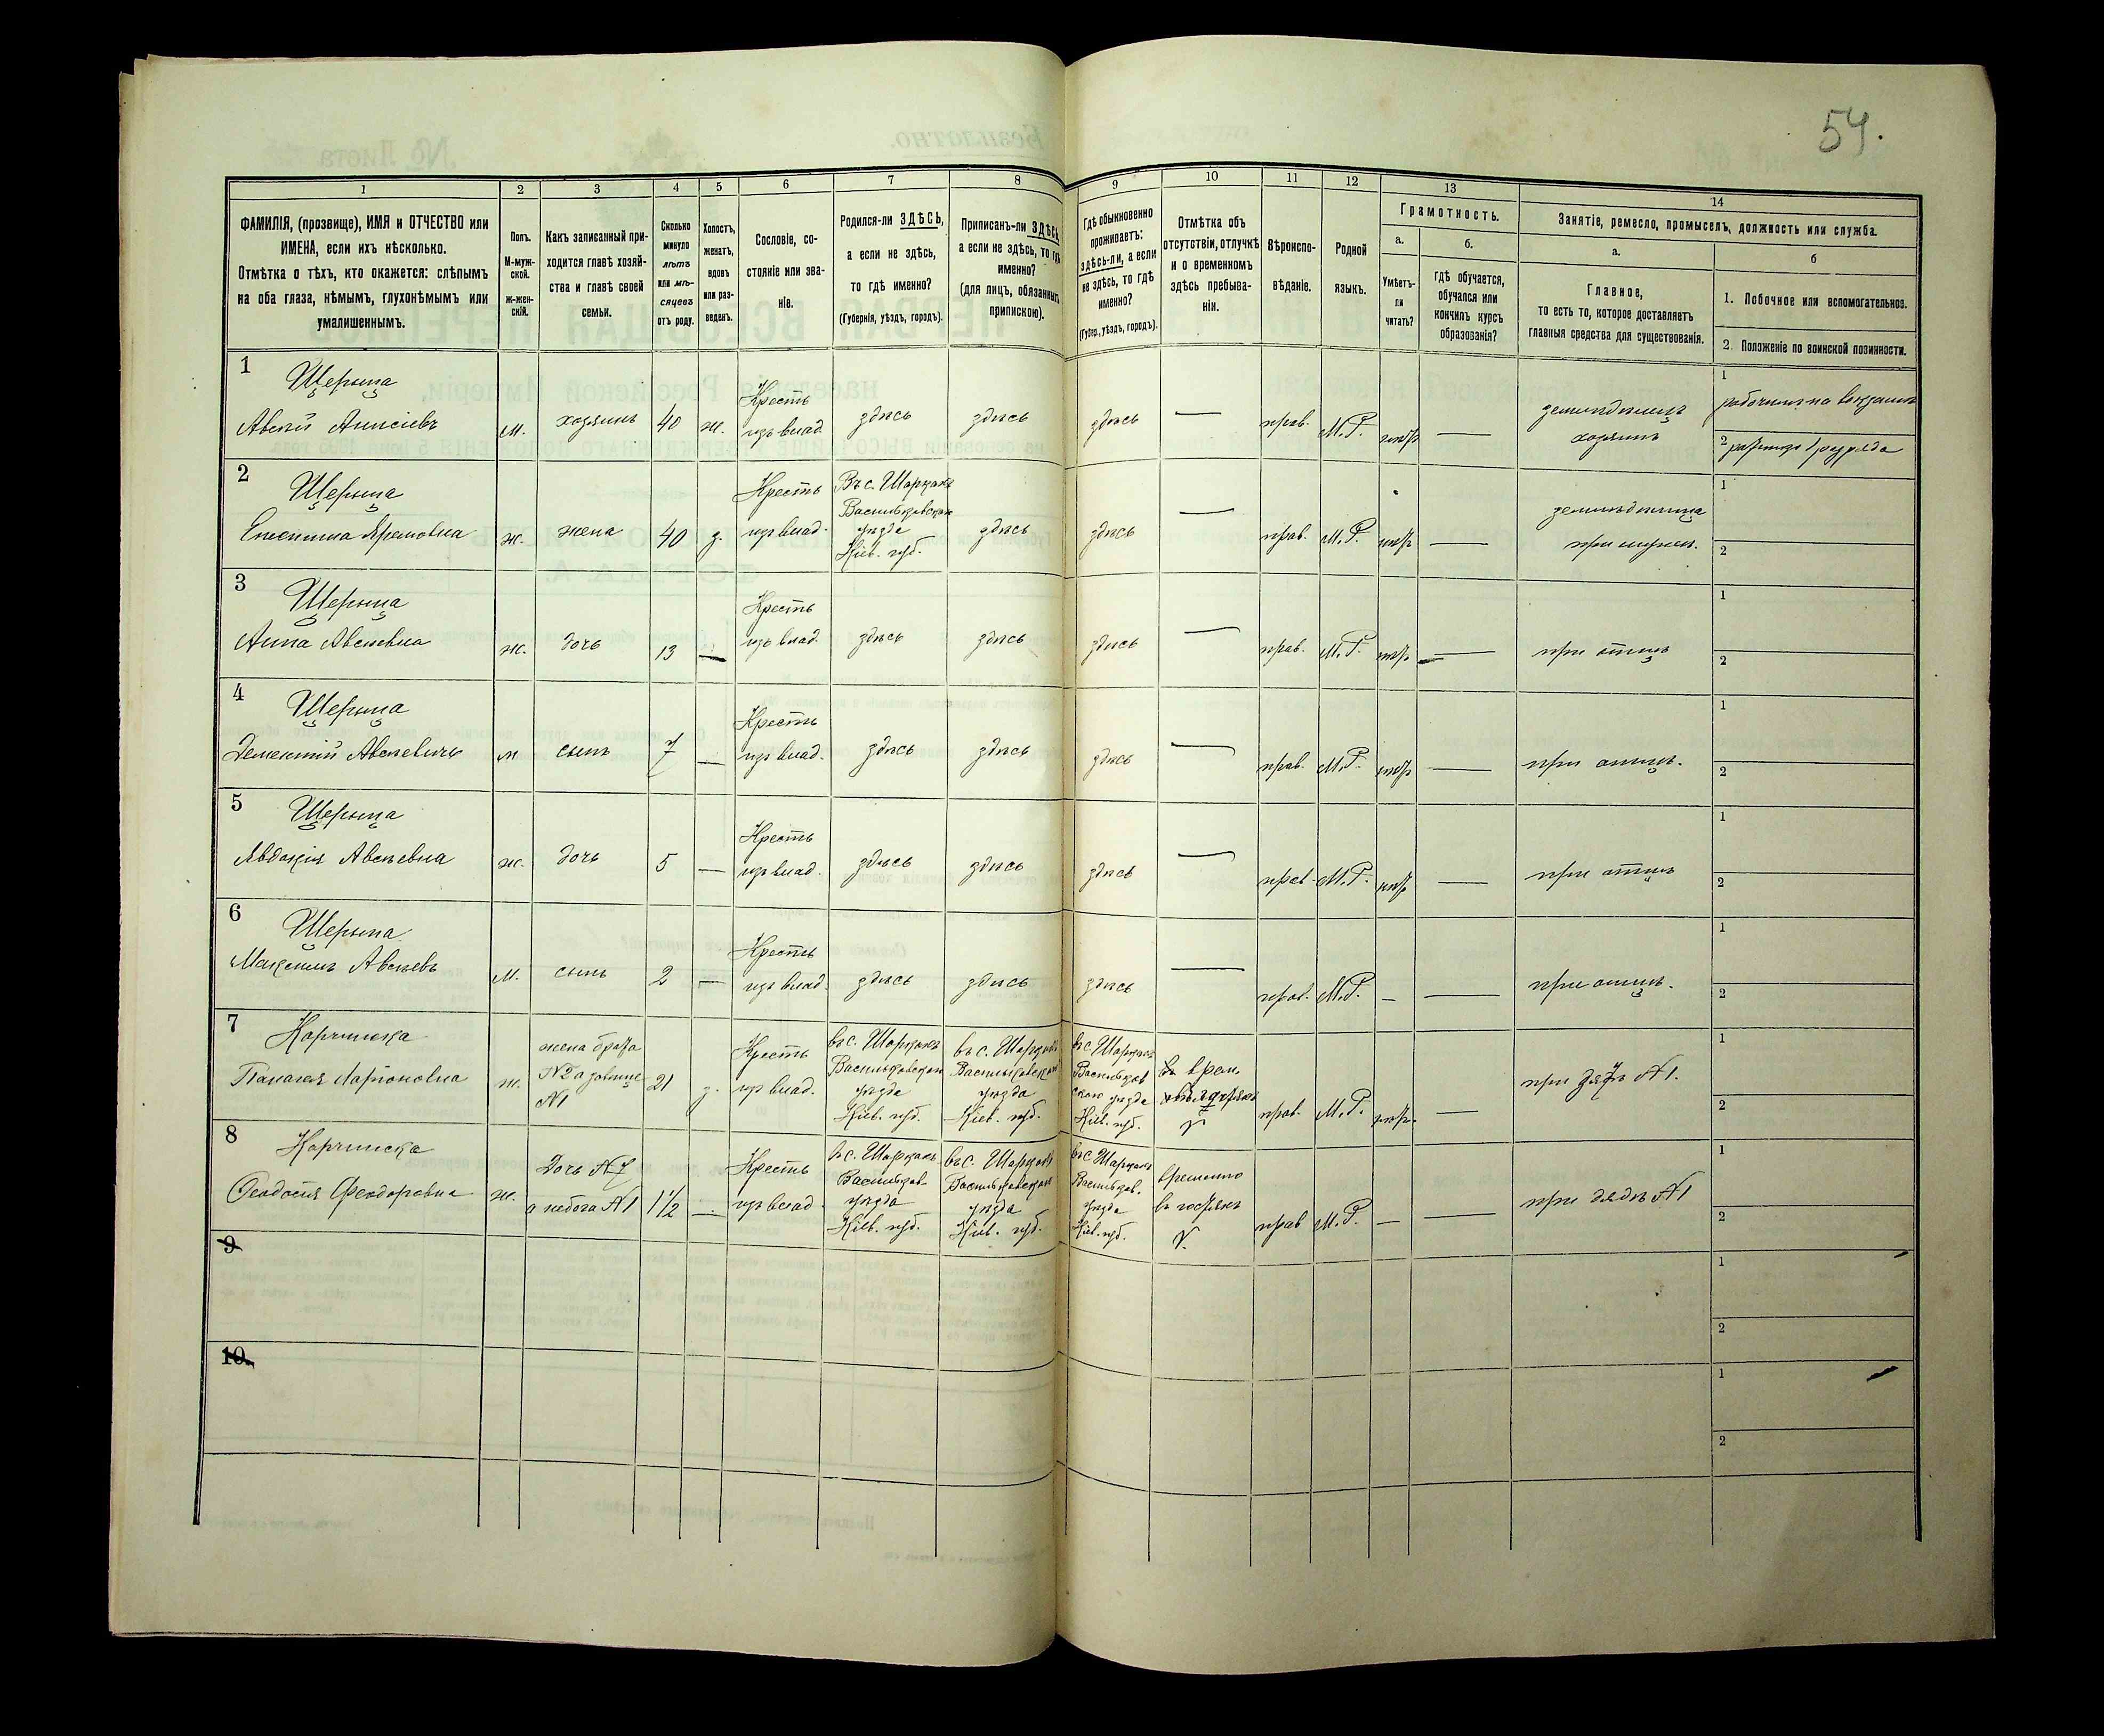 54.
1
2
3
4
5
6
7
8
9
10
11
12
13
14
ФАМИЛІЯ, (прозвище), ИМЯ и ОТЧЕСТВО или
ИМЕНА, если ихъ нѣсколько.
Отмѣтка о тѣхъ, кто окажется: слѣпымъ
на оба глаза, нѣмымъ, глухонѣмымъ или
умалишеннымъ.
Полъ.
М-муж-
ской.
ж-жен-
скій.
Какъ записанный при-
ходится главѣ хозяй-
ства и главѣ своей
семьи.
Сколько
минуло
лѣтъ
или мѣ-
сяцевъ
отъ роду.
Холостъ,
женатъ,
вдовъ
или раз-
веденъ.
Сословіе, со-
стояніе или зва-
ніе.
Родился-ли ЗДѢСЬ,
а если не здѣсь,
то гдѣ именно?
(Губернія, уѣздъ, городъ).
Приписанъ-ли ЗДѢСЬ,
а если не здѣсь, то гдѣ
именно?
(для лицъ, обязанныхъ
припискою).
Гдѣ обыкновенно
проживаетъ:
здѣсь-ли, а если
не здѣсь, то гдѣ
именно?
(Губер., уѣздъ, городъ).
Отмѣтка объ
отсутствіи, отлучкѣ
и о временномъ
здѣсь пребыва-
ніи.
Вѣроиспо-
вѣданіе.
Родной
языкъ.
Грамотность.
а.
Умѣетъ-
ли
читать?
б.
Гдѣ обучается,
обучался или
кончилъ курсъ
образованія?
Занятіе, ремесло, промыселъ, должность или служба.
а.
Главное,
то есть то, которое доставляетъ
главныя средства для существованія.
б
1. Побочное или вспомогательное.
2. Положеніе по воинской повинности.
1
Щерыца
м.
хозяинъ
40
ж.
Кресть
изъ влад.
здѣсь
здѣсь
здѣсь
—
прав.
М.Р.
—
хозяинъ
1
2
2
Щерыца
ж.
жена
40
з.
Кресть
изъ влад.
Въ с. Шаркахъ
Васильковскаго
уѣзда
Кіев. губ.
здѣсь
здѣсь
—
прав.
М.Р.
—
при мужѣ.
1
2
3
Щерыца
Анна Авсѣевна
ж.
дочь
13
—
Кресть
изъ влад.
здѣсь
здѣсь
здѣсь
—
прав.
М.Р.
—
при отцѣ
1
2
4
Щерыца
Дементій Авсѣевичъ
м
сынъ
7
—
Кресть
изъ влад.
здѣсь
здѣсь
здѣсь
—
прав.
М.Р.
—
при отцѣ.
1
2
5
Щерыца
Явдокія Авсѣевна
ж.
дочь
5
—
Кресть
изъ влад.
здѣсь
здѣсь
здѣсь
—
прав.
М.Р.
—
при отцѣ
1
2
6
Щерыца
Максимъ Авсѣевъ
м.
сынъ
2
—
Кресть
изъ влад.
здѣсь
здѣсь
здѣсь
—
прав.
М.Р.
—
—
при отцѣ.
1
2
7
Ларіоновна
ж.
жена брата
№1
21
з.
Кресть
изъ влад.
въ с. Шаркахъ
Васильковскаго
уѣзда
Кіев. губ.
въ с. Шаркахъ
Васильковскаго
уѣзда
Кіев. губ.
въ с. Шаркахъ
Васильков
скаго уѣзда
Кіев. губ.
прав.
М.Р.
—
при №1.
1
2
8
Феодосія Феодоровна
ж.
Дочь №7
а небога №1
1½
—
Кресть
изъ влад.
въ с. Шаркахъ
Васильков.
уѣзда
Кіев. губ.
въ с. Шаркахъ
Васильковскаго
уѣзда
Кіев. губ.
въ с. Шаркахъ
Васильков.
уѣзда
Кіев. губ.
временно
прав
М.Р.
—
—
при дядѣ №1
1
2
9
1
2
10
1
2